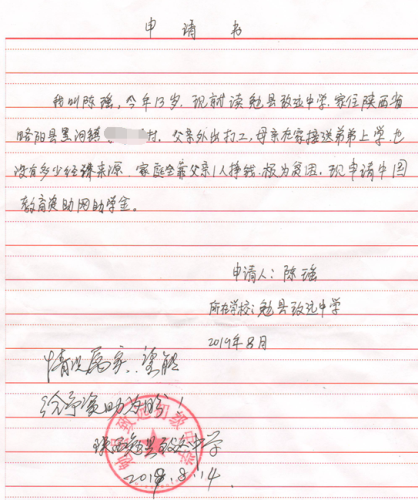 申请书
我叫陈瑶，今年13岁，现就读勉县致远中学，家住陕西省
略阳县黑河镇村，父亲外出打工，母亲在家接送弟弟上学，也
没有多少经济来源，家庭全靠父亲1人挣钱，极为贫困，现申请中国
教育资助网助学金。
申请人：陈瑶
所在学校：勉县致远中学
2019年8月
情况属实，望能
给予资助为盼！
陕西勉县致远中学
2019.8.14